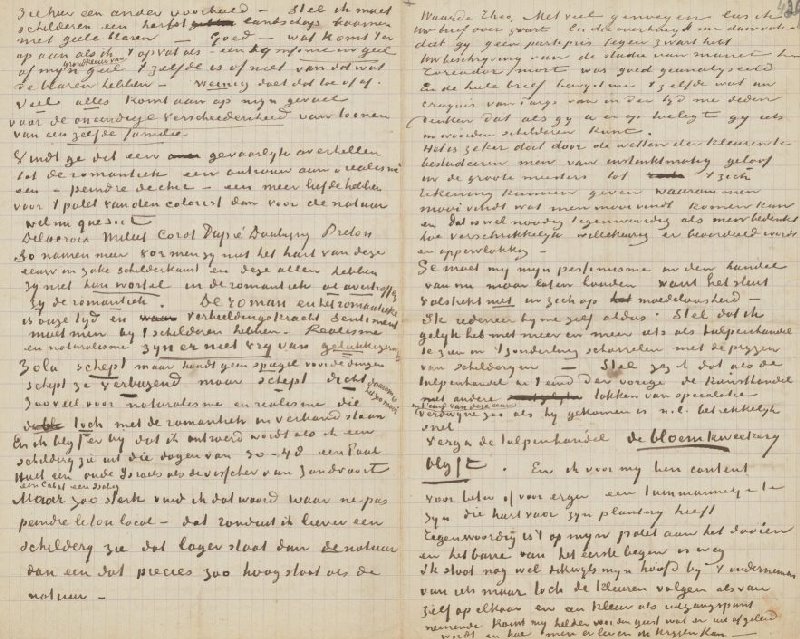 Zie hier een ander voorbeeld – Stel ik moet
schilderen een herfst landschap boomen
met geele bladeren Goed – wat komt er
op aan als ik 't opvat als – een symfonie in geel
of mijn grondkleur van geel 't zelfde is of niet van dat van
de blaren hebben – weinig doet dat toe of af.
Veel alles komt aan op mijn gevoel
voor de oneindige verscheidenheid van toonen
van een zelfde familie.
Vindt ge dit een gevaarlijk overhellen
tot de romantiek een ontrouw aan realisme
een – peindre de chic – een meer liefde hebben
voor 't palet van den colorist dan voor de natuur
wel nu que soit
Delacroix Millet Corot Dupré Daubigny Breton
30 namen meer vormen zij niet het hart van deze
eeuw in zake schilderkunst en deze allen hebben
zij niet hun wortel in de romantiek al overtroffen
zij de romantiek. De roman en het romantische
is onze tijd en verbeeldingskracht sentiment
moet men bij 't schilderen hebben. Realisme
en naturalisme zijn er niet vrij van gelukkiger wijs
Zola schept maar houdt geen spiegel voor de dingen
schept ze verbazend maar schept dicht daarom
is het zoo mooi
Zooveel voor naturalisme en realisme die
toch met de romantiek in verband staan
En ik blijf er bij dat ik ontroerd wordt als ik een
schilderij zie uit die dagen van 30–48 een Paul
Huet een oude Israels als de visscher van Zandvoort
een Cabat een Isabey
Maar zoo sterk vind ik dat woord waar ne pas
peindre le ton local – dat ronduit ik liever een
schilderij zie dat lager staat dan de natuur
dan een dat precies zoo hoog staat als de
natuur –
Waarde Theo, Met veel genoegen las ik
uw brief over zwart En die overtuigt me dan ook
dat gij geen partipris tegen zwart hebt
Uw beschrijving van de studie van Manet – den
Toreador mort was goed geanalyseerd
En de heele brief bewijst me 't zelfde wat uw
craquis van Parijs van in der tijd me deden
denken dat als gij u er op toelegt gij iets
in woorden schilderen kunt.
Het is zeker dat door de wetten der kleuren te
bestudeeren men van instinktmatig geloof
in de groote meesters tot 't zich
rekening kunnen geven waarom men
mooi vindt wat men mooi vindt komen kan
en dat is wel noodig tegenwoordig als men bedenkt
hoe verschrikkelijk willekeurig er beoordeeld wordt
en oppervlakkig –
Ge moet mij mijn pessimisme in den handel
van nu maar laten houden want het sluit
volstrekt niet in zich op moedeloosheid –
Ik redeneer bij me zelf aldus. Stel dat ik
gelijk heb met meer en meer iets als tulpenhandel
te zien in 't zonderling scharrelen met de prijzen
van schilderijen – Stel zeg ik dat als de
tulpenhandel in 't eind der vorige de kunsthandel
met andere takken van speculatie
in 't eind van deze eeuw
verdwijne zoo als hij gekomen is n.l. betrekkelijk
snel
Verga de tulpenhandel de bloemkweekerij
blijft. En ik voor mij ben content
voor beter of voor erger een tuinmannetje te
zijn die hart voor zijn planterij heeft
Tegenwoordig is 't op mijn palet aan het dooien
en het barre van het eerste begin is weg
ik stoot nog wel dikwijls mijn hoofd bij 't ondernemen
van iets maar toch de kleuren volgen als van
zelf op elkaar en een kleur als uitgangspunt
nemende komt mij helder voor den geest wat er uit afgeleid
wordt en hoe men er leven in krijgen kan –